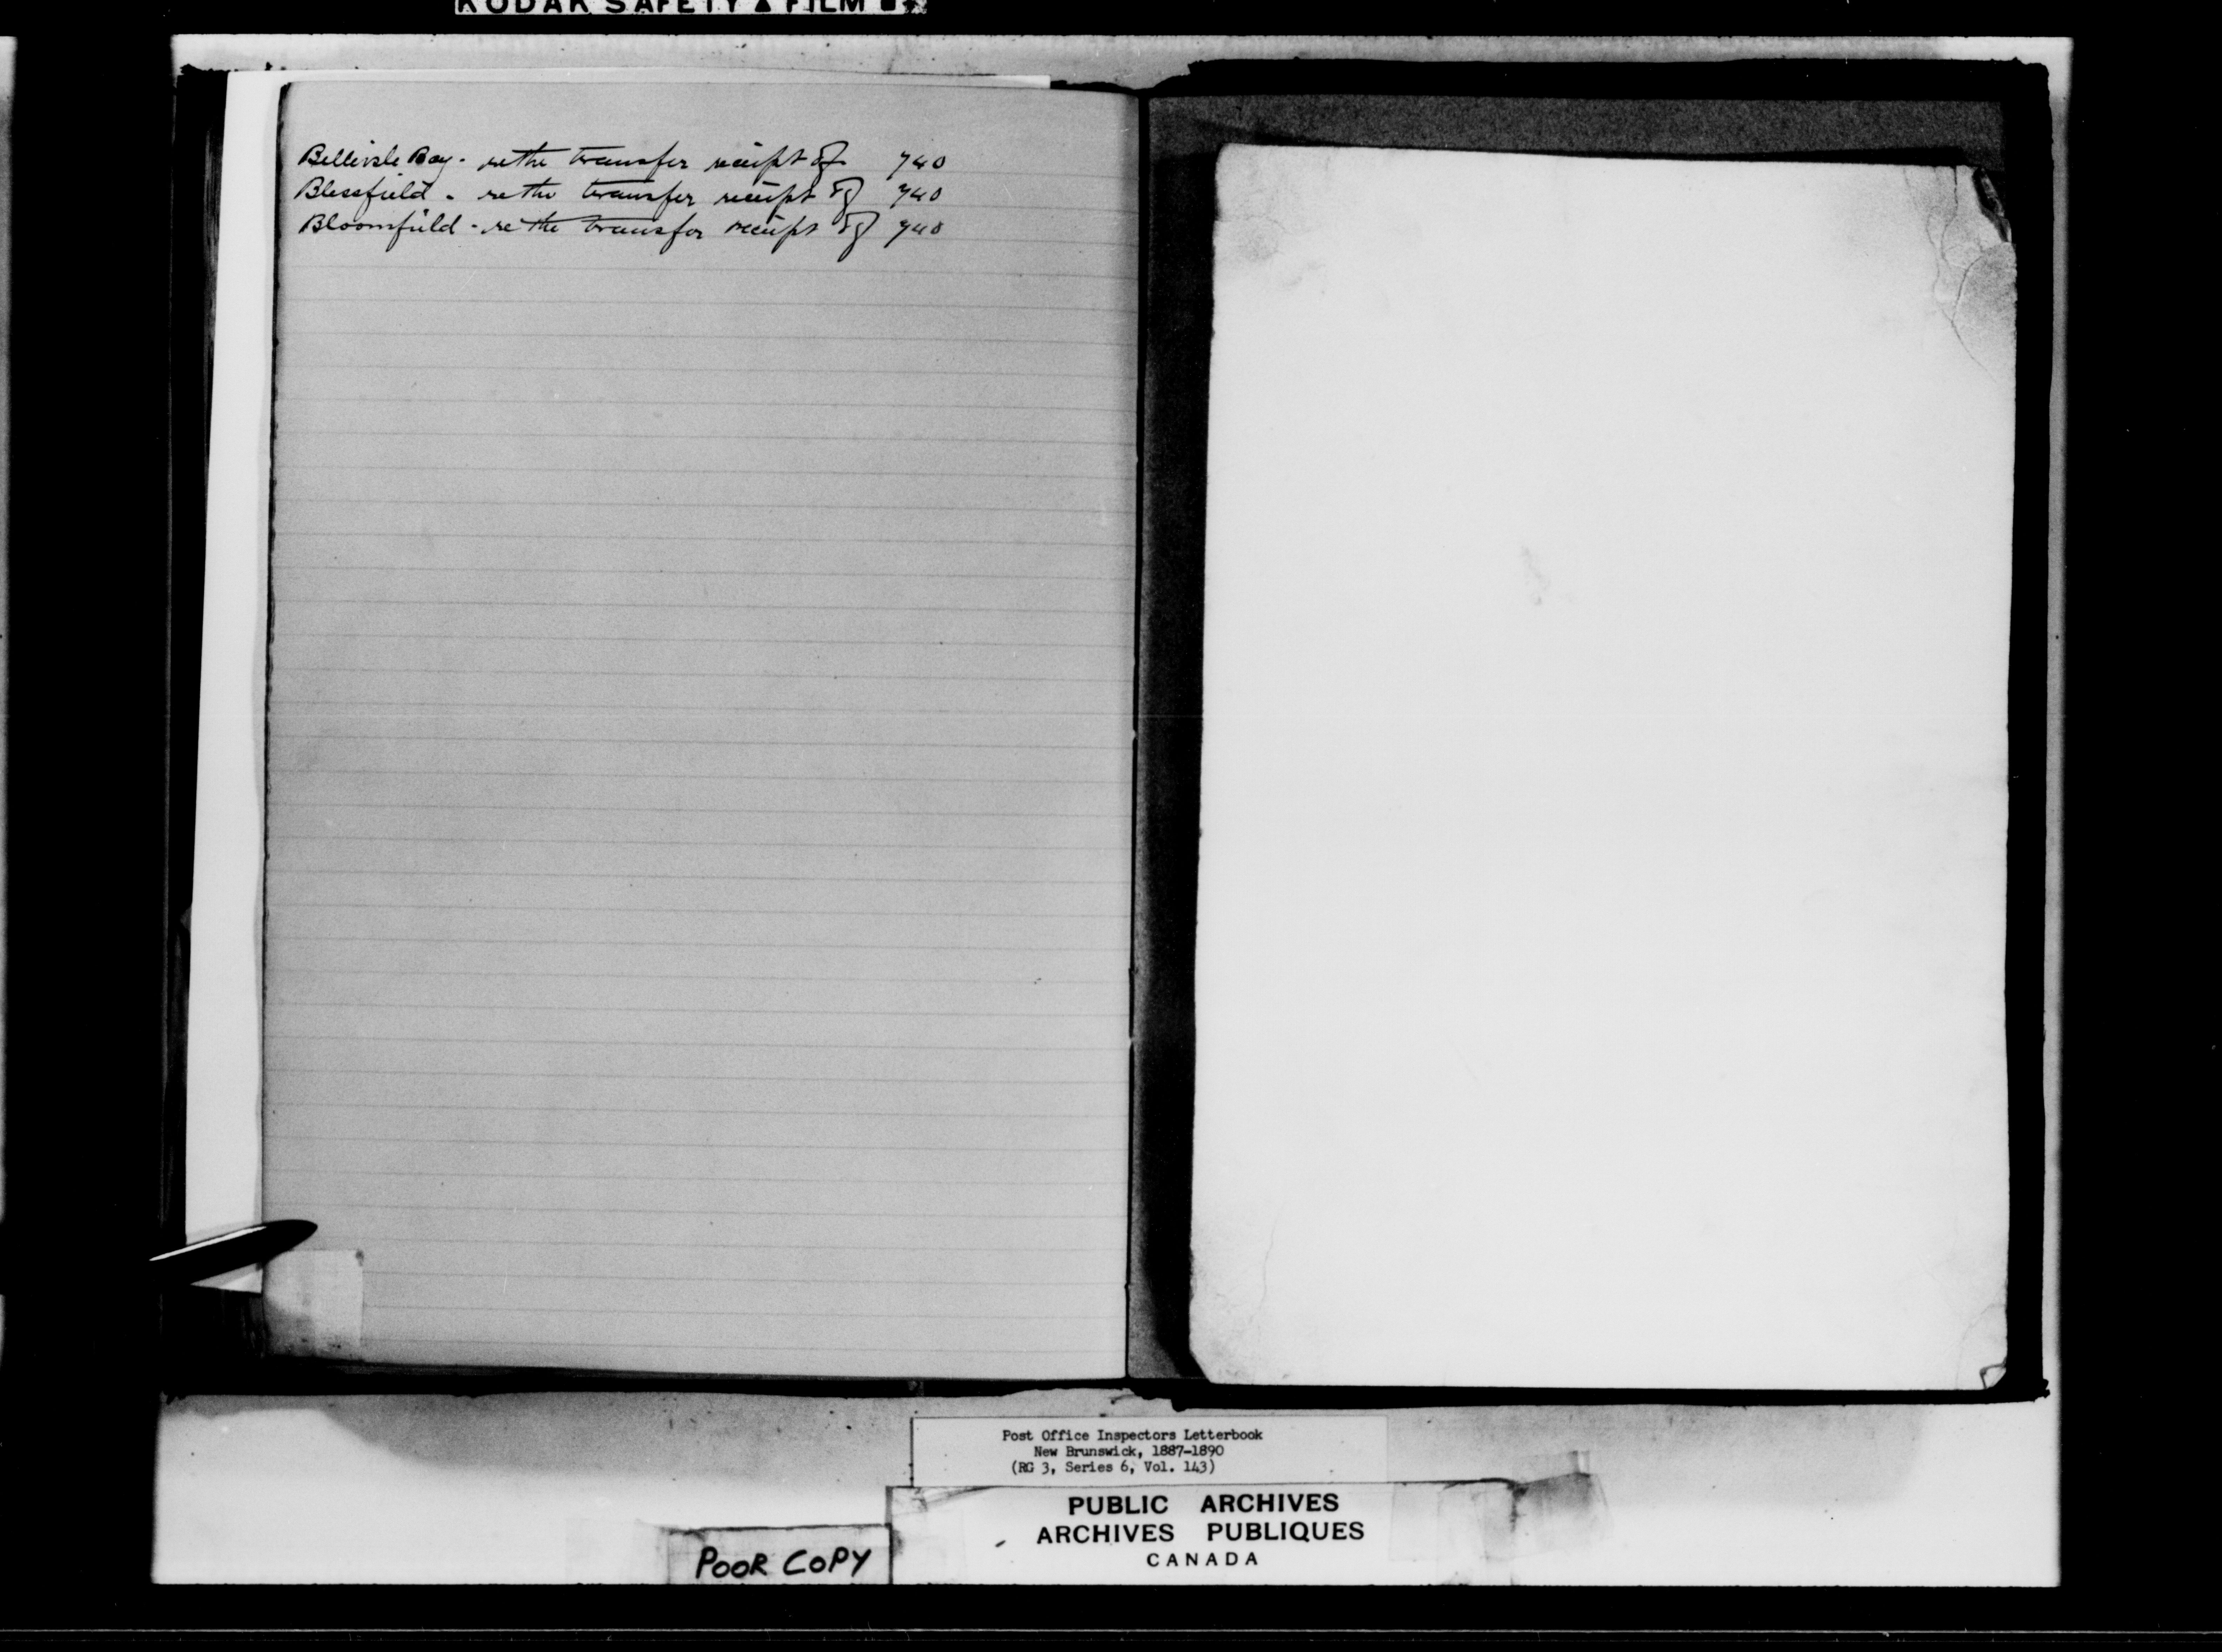 KODAK SAFETY FILM
Bellisle Bay - re the transfer receipt of 740
Blissfield - re the transfer receipt of 740
Bloomfield - re the transfer receipt of 740
Post Office Inspectors Letterbook
New Brunswick, 1887-1890
(RG 3, Series 6, Vol. 143)
PUBLIC ARCHIVES
ARCHIVES PUBLIQUES
CANADA
POOR COPY